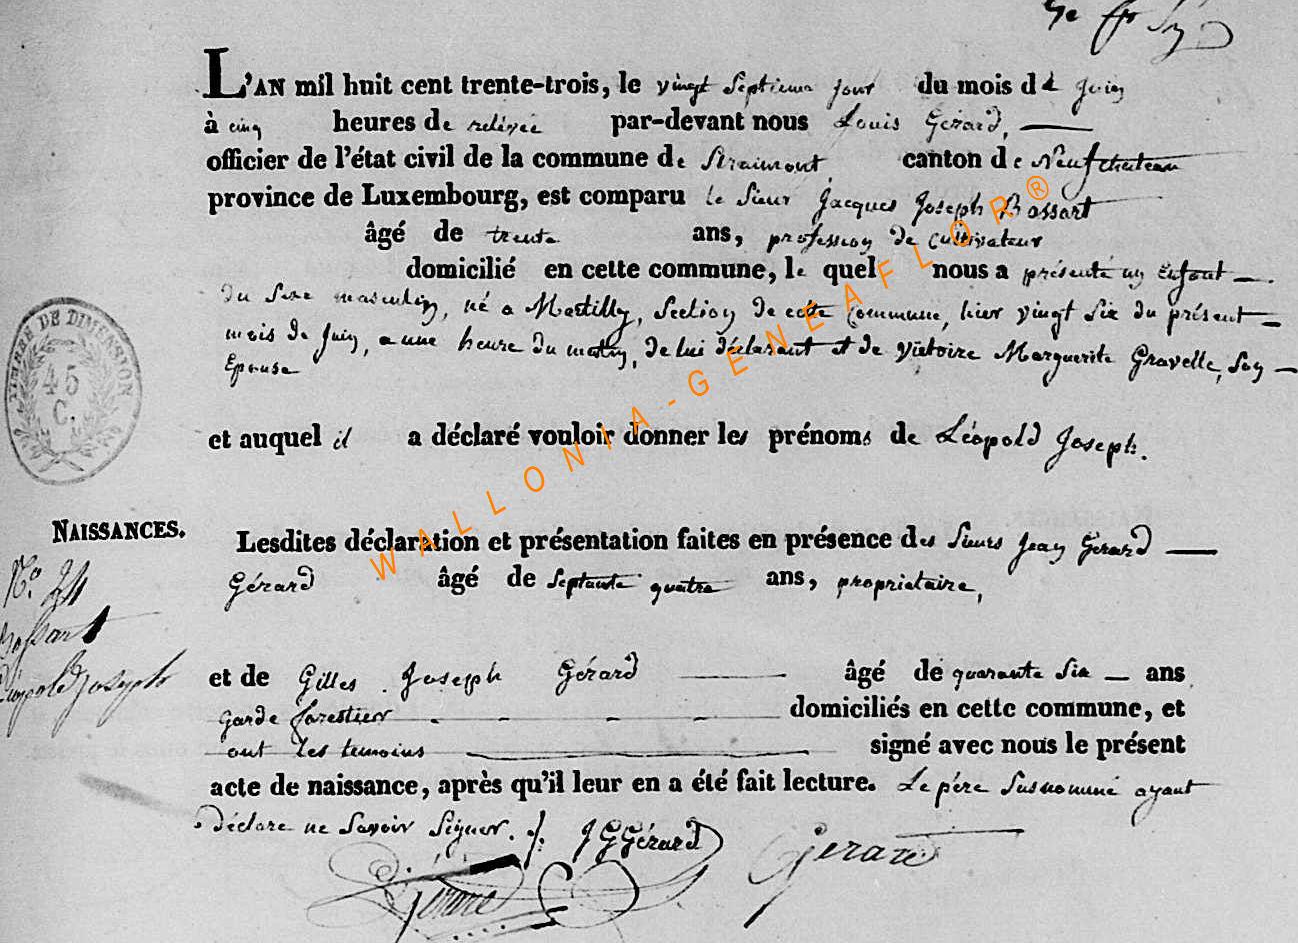 L'AN mil huit cent trente-trois, le vingt Septieme jour du mois de Juin
à cinq heures de relevée par-devant nous Louis Gérard,
officier de l'état civil de la commune de Straimont, canton de Neufchateau
province de Luxembourg, est comparu le Sieur Jacques Joseph Bossart
âgé de trente ans, profession de cultivateur
domicilié en cette commune, le quel nous a présenté un Enfant
du Sexe masculin, né a Martilly, Section de cette Commune, hier vingt Six du présent
mois de Juin, a une heure du matin, de lui déclarant et de Victoire Marguerite Gravelle, Son
Epouse
et auquel il a déclaré vouloir donner les prénoms de Léopold Joseph.
TIMBRE DE DIMENSION
45
C.
NAISSANCES.
N.º 24
Bossart
Léopold Joseph
Lesdites déclaration et présentation faites en présence des Sieurs Jean Gerard
Gérard âgé de Septante quatre ans, propriétaire,
et de Gilles Joseph Gérard âgé de quarante Six ans
Garde forestier domiciliés en cette commune, et
ont les temoins signé avec nous le présent
acte de naissance, après qu'il leur en a été fait lecture. Le père Susnommé ayant
déclaré ne Savoir Signer. J G Gérard Gerard
Gérard
WALLONIA-GENEAFLOR®